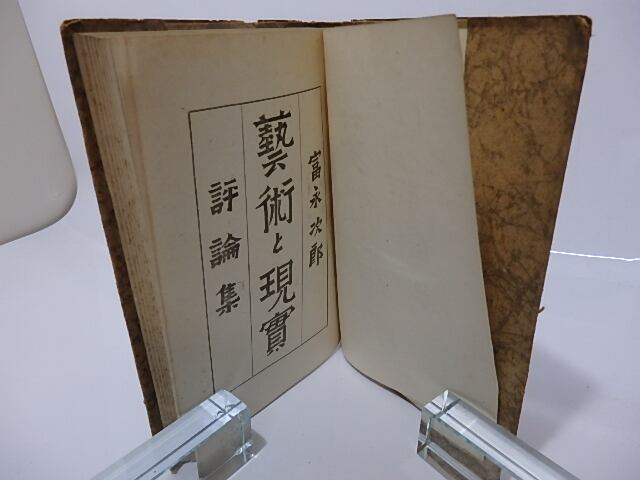 富永次郎
藝術と現實
評論集